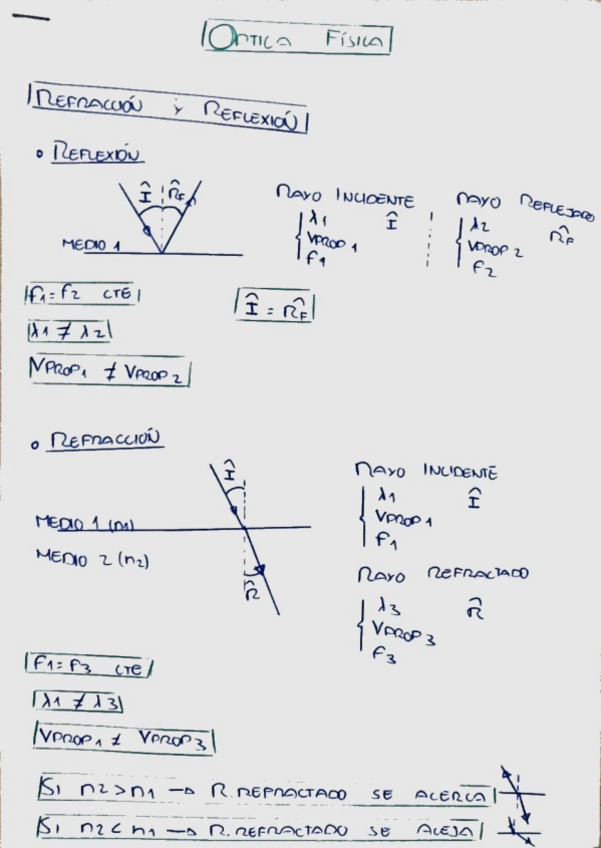 ÓPTICA FÍSICA
REFRACCIÓN Y REFLEXIÓN
• REFLEXIÓN
Î R̂F
MEDIO 1
RAYO INCIDENTE
λ1 Î
VPROP 1
F1
RAYO REFLEJADO
λ2 R̂F
VPROP 2
F2
F1 = F2 CTE
Î = R̂F
λ1 ≠ λ2
VPROP1 ≠ VPROP2
• REFRACCIÓN
Î
MEDIO 1 (n1)
MEDIO 2 (n2)
R̂
RAYO INCIDENTE
λ1 Î
VPROP1
F1
RAYO REFRACTADO
λ3 R̂
VPROP3
F3
F1 = F3 CTE
λ1 ≠ λ3
VPROP1 ≠ VPROP3
SI n2 > n1 → R. REFRACTADO SE ACERCA
SI n2 < n1 → R. REFRACTADO SE ALEJA